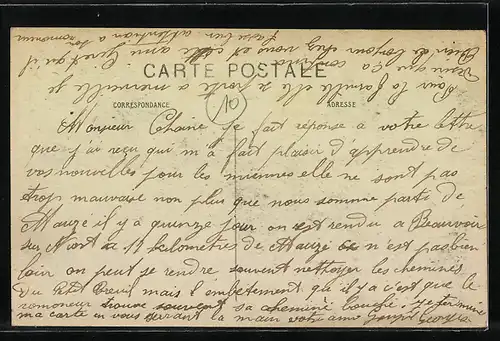 CARTE POSTALE
CORRESPONDANCE
ADRESSE
Monsieur Chaine je fait réponse a votre lettre
que j'ai reçu qui m'a fait plaisir d'apprendre de
vos nouvelles pour les miennes elle ne sont pas
trop mauvaise non plus que nous somme parti de
Mauzé il y a quinze jour on est rendu a Beauvoir
sur Niort a 17 kilomètres de Mauzé ce n'est pas bien
loin on peut se rendre souvent nettoyer les cheminés
Du Petit Breuil mais l'embetement qu'il y a c'est que le
ramoneur trouve souvent sa cheminé bouché je termine
ma carte en vous serrant la main votre ami
Pour la famille elle se porte a merveille je
chez vous et
attention a son
ramoneur